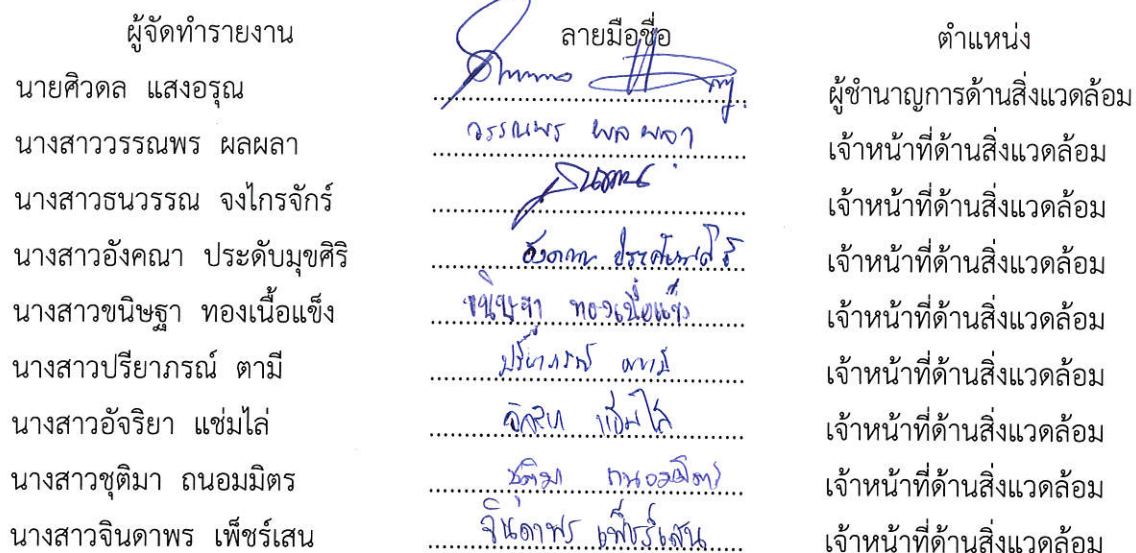 ผู้จัดทำรายงาน ลายมือชื่อ ตำแหน่ง
นายศิวดล แสงอรุณ ผู้ชำนาญการด้านสิ่งแวดล้อม
นางสาววรรณพร ผลผลา วรรณพร ผลผลา เจ้าหน้าที่ด้านสิ่งแวดล้อม
นางสาวธนวรรณ จงไกรจักร์ เจ้าหน้าที่ด้านสิ่งแวดล้อม
นางสาวอังคณา ประดับมุขศิริ อังคณา ประดับมุขศิริ เจ้าหน้าที่ด้านสิ่งแวดล้อม
นางสาวขนิษฐา ทองเนื้อแข็ง ขนิษฐา ทองเนื้อแข็ง เจ้าหน้าที่ด้านสิ่งแวดล้อม
นางสาวปรียาภรณ์ ตามี ปรียาภรณ์ ตามี เจ้าหน้าที่ด้านสิ่งแวดล้อม
นางสาวอัจริยา แช่มไล่ อัจริยา แช่มไล่ เจ้าหน้าที่ด้านสิ่งแวดล้อม
นางสาวชุติมา ถนอมมิตร ชุติมา ถนอมมิตร เจ้าหน้าที่ด้านสิ่งแวดล้อม
นางสาวจินดาพร เพ็ชร์เสน จินดาพร เพ็ชร์เสน เจ้าหน้าที่ด้านสิ่งแวดล้อม